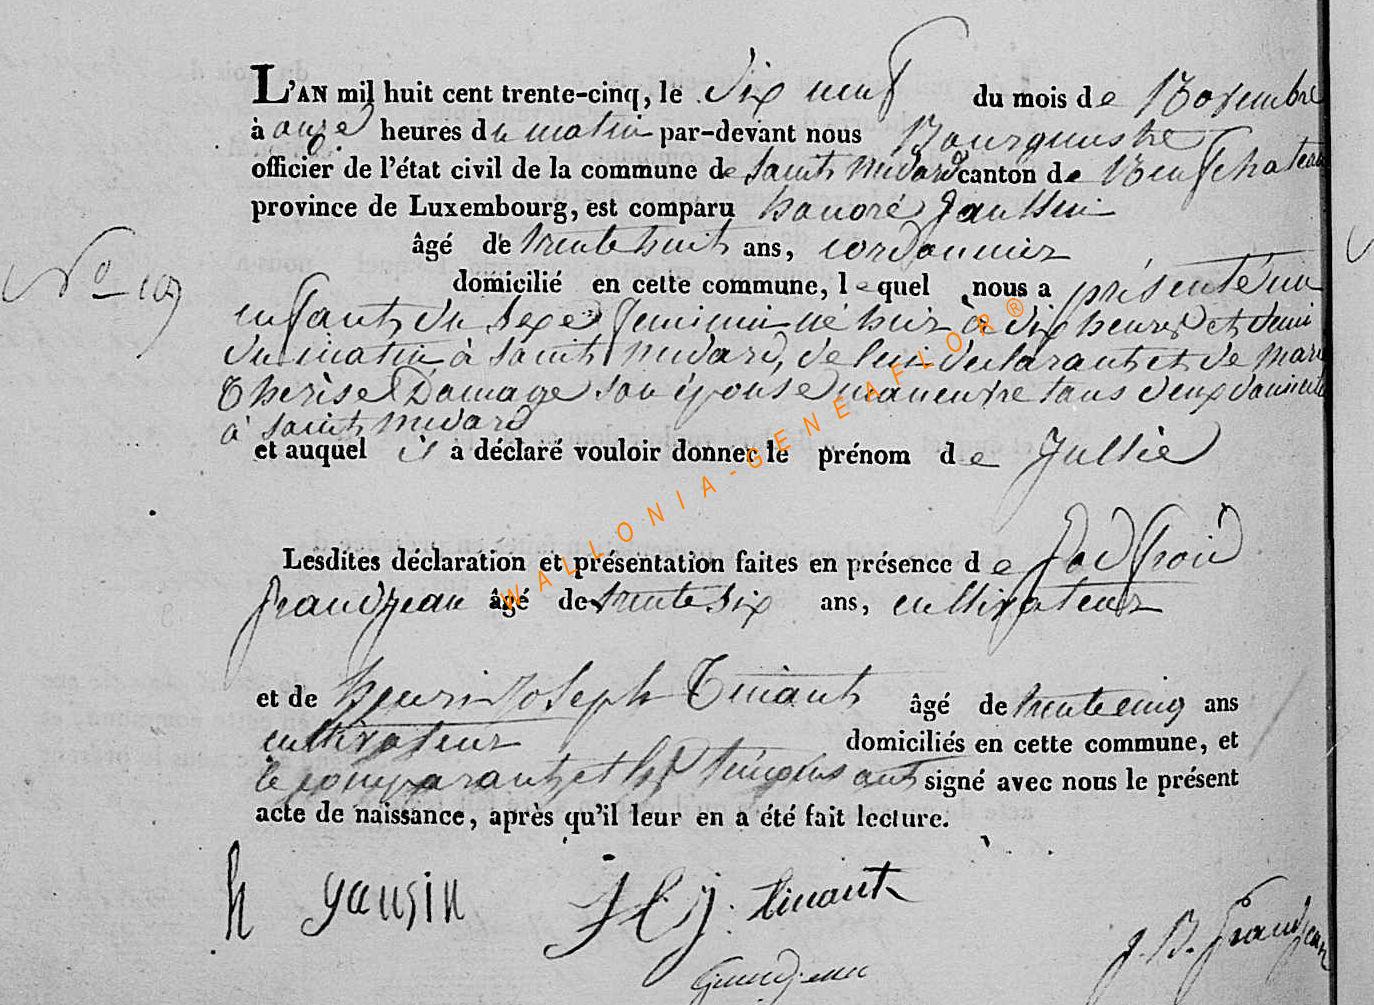 L'AN mil huit cent trente-cinq, le dix neuf du mois de Novembre
à onze heures du matin par-devant nous Bourgmestre
officier de l'état civil de la commune de Saint Médard canton de Neufchateau
province de Luxembourg, est comparu honoré Jaussin
âgé de trente huit ans, cordonnier
domicilié en cette commune, lequel nous a présenté un
N° 19
enfant du sexe feminin né hier à dix heures et demi
du matin à saint médard, de lui déclarant et de marie
Therèse Domage son épouse tous deux domiciliés
à saint médard
et auquel il a déclaré vouloir donner le prénom de Jullie
Lesdites déclaration et présentation faites en présence de Godfroid
Grandjean âgé de trente six ans, cultivateur
et de henri Joseph Tinant âgé de trente cinq ans
cultivateur domiciliés en cette commune, et
le comparant et les témoins ont signé avec nous le présent
acte de naissance, après qu'il leur en a été fait lecture.
h Yausin
H J. tinant
J. B. Grandjean
Grandjean
WALLONIA-GENEAFLOR®